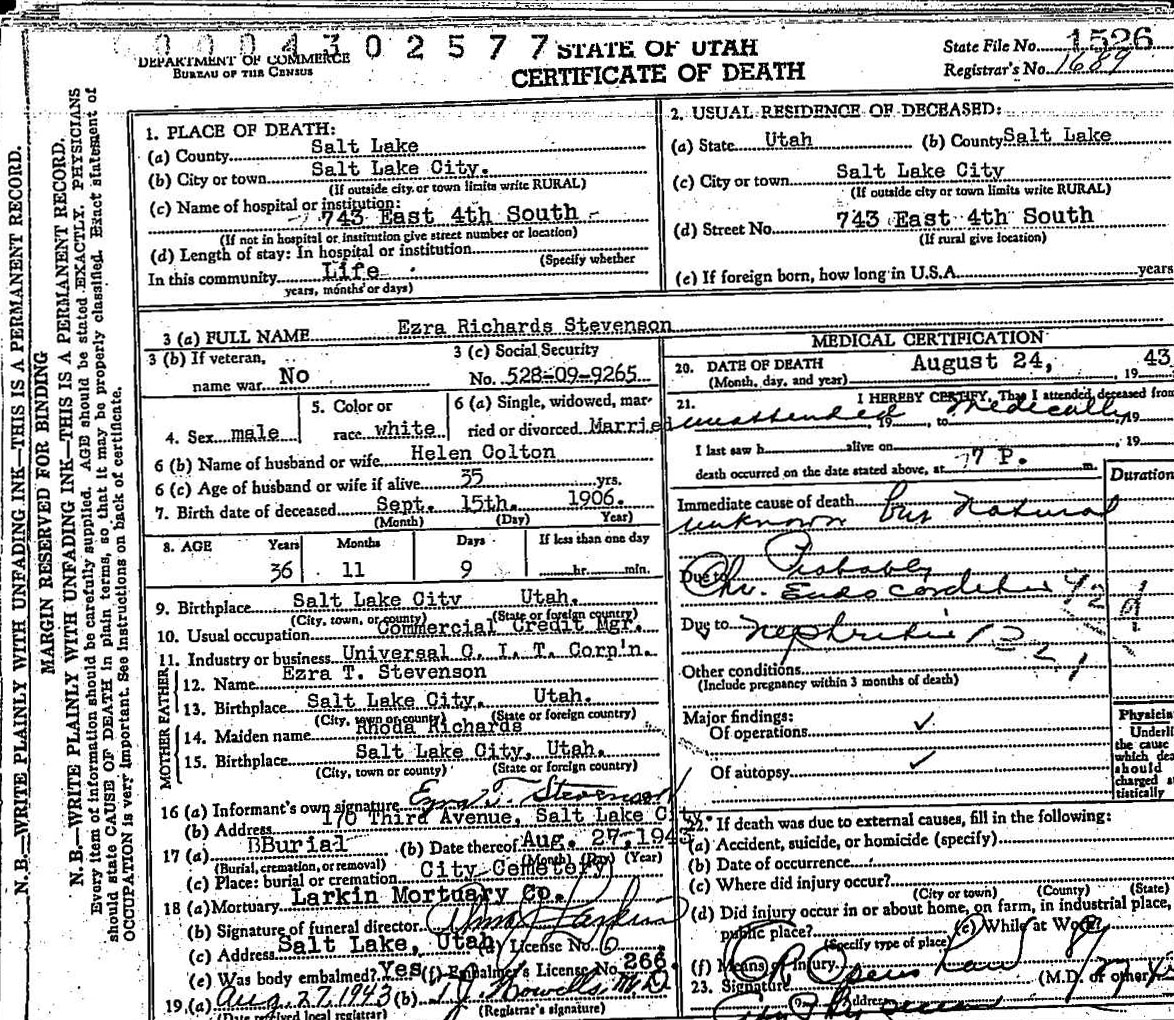 0004302577 STATE OF UTAH
DEPARTMENT OF COMMERCE
BUREAU OF THE CENSUS
CERTIFICATE OF DEATH
State File No. 1526
Registrar's No. 1689
N. B.—WRITE PLAINLY WITH UNFADING INK—THIS IS A PERMANENT RECORD.
MARGIN RESERVED FOR BINDING
N. B.—WRITE PLAINLY WITH UNFADING INK—THIS IS A PERMANENT RECORD.
Every item of information should be carefully supplied. AGE should be stated EXACTLY. PHYSICIANS
should state CAUSE OF DEATH in plain terms, so that it may be properly classified. Exact statement of
OCCUPATION is very important. See instructions on back of certificate.
1. PLACE OF DEATH:
(a) County Salt Lake
(b) City or town Salt Lake City.
(If outside city or town limits write RURAL)
(c) Name of hospital or institution:
743 East 4th South
(If not in hospital or institution give street number or location)
(d) Length of stay: In hospital or institution
(Specify whether
In this community Life
years, months or days)
2. USUAL RESIDENCE OF DECEASED:
(a) State Utah (b) County Salt Lake
(c) City or town Salt Lake City
(If outside city or town limits write RURAL)
(d) Street No. 743 East 4th South
(If rural give location)
(e) If foreign born, how long in U.S.A. years
3 (a) FULL NAME Ezra Richards Stevenson
3 (b) If veteran,
name war No
3 (c) Social Security
No. 528-09-9265
4. Sex male
5. Color or
race white
6 (a) Single, widowed, mar-
ried or divorced Married
6 (b) Name of husband or wife Helen Colton
6 (c) Age of husband or wife if alive 35 yrs.
7. Birth date of deceased Sept. 15th. 1906.
(Month) (Day) Year)
8. AGE Years Months Days If less than one day
36 11 9 hr. min.
9. Birthplace Salt Lake City Utah.
(City, town, or county) (State or foreign country)
10. Usual occupation Commercial Credit Mgr.
11. Industry or business Universal C. I. T. Corp'n.
FATHER
12. Name Ezra T. Stevenson
13. Birthplace Salt Lake City, Utah.
(City, town or county) (State or foreign country)
MOTHER
14. Maiden name Rhoda Richards
15. Birthplace Salt Lake City, Utah.
(City, town or county) (State or foreign country)
16 (a) Informant's own signature Ezra T. Stevenson
(b) Address 170 Third Avenue, Salt Lake City
17 (a) BBurial (b) Date thereof Aug. 27, 1943
(Burial, cremation, or removal) (Month) (Day) (Year)
(c) Place: burial or cremation City Cemetery
18 (a) Mortuary Larkin Mortuary Co.
(b) Signature of funeral director Larkin
(c) Address Salt Lake, Utah License No. 6
(e) Was body embalmed? Yes (f) Embalmer's License No. 266.
19. (a) Aug. 27, 1943 (b) Howells, M D
(Date received local registrar) (Registrar's signature)
MEDICAL CERTIFICATION
20. DATE OF DEATH August 24, 19 43
(Month, day, and year)
21. I HEREBY CERTIFY, That I attended, deceased from
unattended medically, 19 , to , 19
I last saw h alive on , 19
death occurred on the date stated above, at 7 P. m.
Duration
Immediate cause of death
unknown but Natural
Probably
Due to Chr. Endocarditis 92 d
Due to Nephritis 131
Other conditions
(Include pregnancy within 3 months of death)
Major findings:
Of operations ✓
Of autopsy ✓
Physician
Underli
the cause
which dea
should
charged s
tistically
22. If death was due to external causes, fill in the following:
(a) Accident, suicide, or homicide (specify)
(b) Date of occurrence
(c) Where did injury occur?
(City or town) (County) (State)
(d) Did injury occur in or about home, on farm, in industrial place,
public place? (e) While at Work?
(Specify type of place)
(f) Means of injury
23. Signature (M.D. or other)
Address